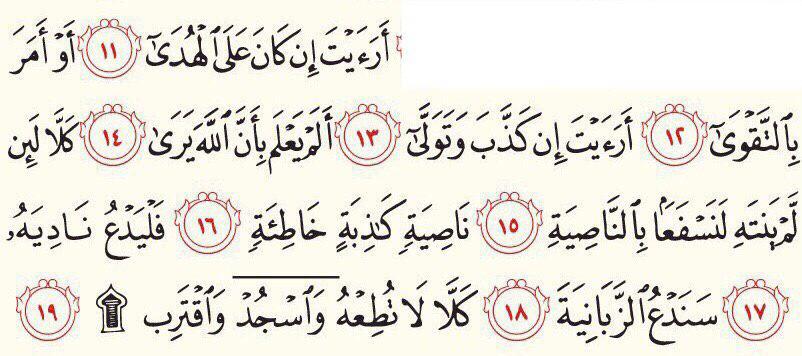 أَرَءَيْتَ إِن كَانَ عَلَى ٱلْهُدَىٰٓ ١١ أَوْ أَمَرَ
بِٱلتَّقْوَىٰٓ ١٢ أَرَءَيْتَ إِن كَذَّبَ وَتَوَلَّىٰٓ ١٣ أَلَمْ يَعْلَم بِأَنَّ ٱللَّهَ يَرَىٰ ١٤ كَلَّا لَئِن
لَّمْ يَنتَهِ لَنَسْفَعَۢا بِٱلنَّاصِيَةِ ١٥ نَاصِيَةٍ كَـٰذِبَةٍ خَاطِئَةٍ ١٦ فَلْيَدْعُ نَادِيَهُۥ
١٧ سَنَدْعُ ٱلزَّبَانِيَةَ ١٨ كَلَّا لَا تُطِعْهُ وَٱسْجُدْ وَٱقْتَرِب ۩ ١٩